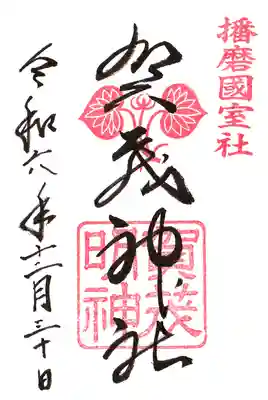 播磨國室社
加茂神社
賀茂
明神
令和六年十二月三十日